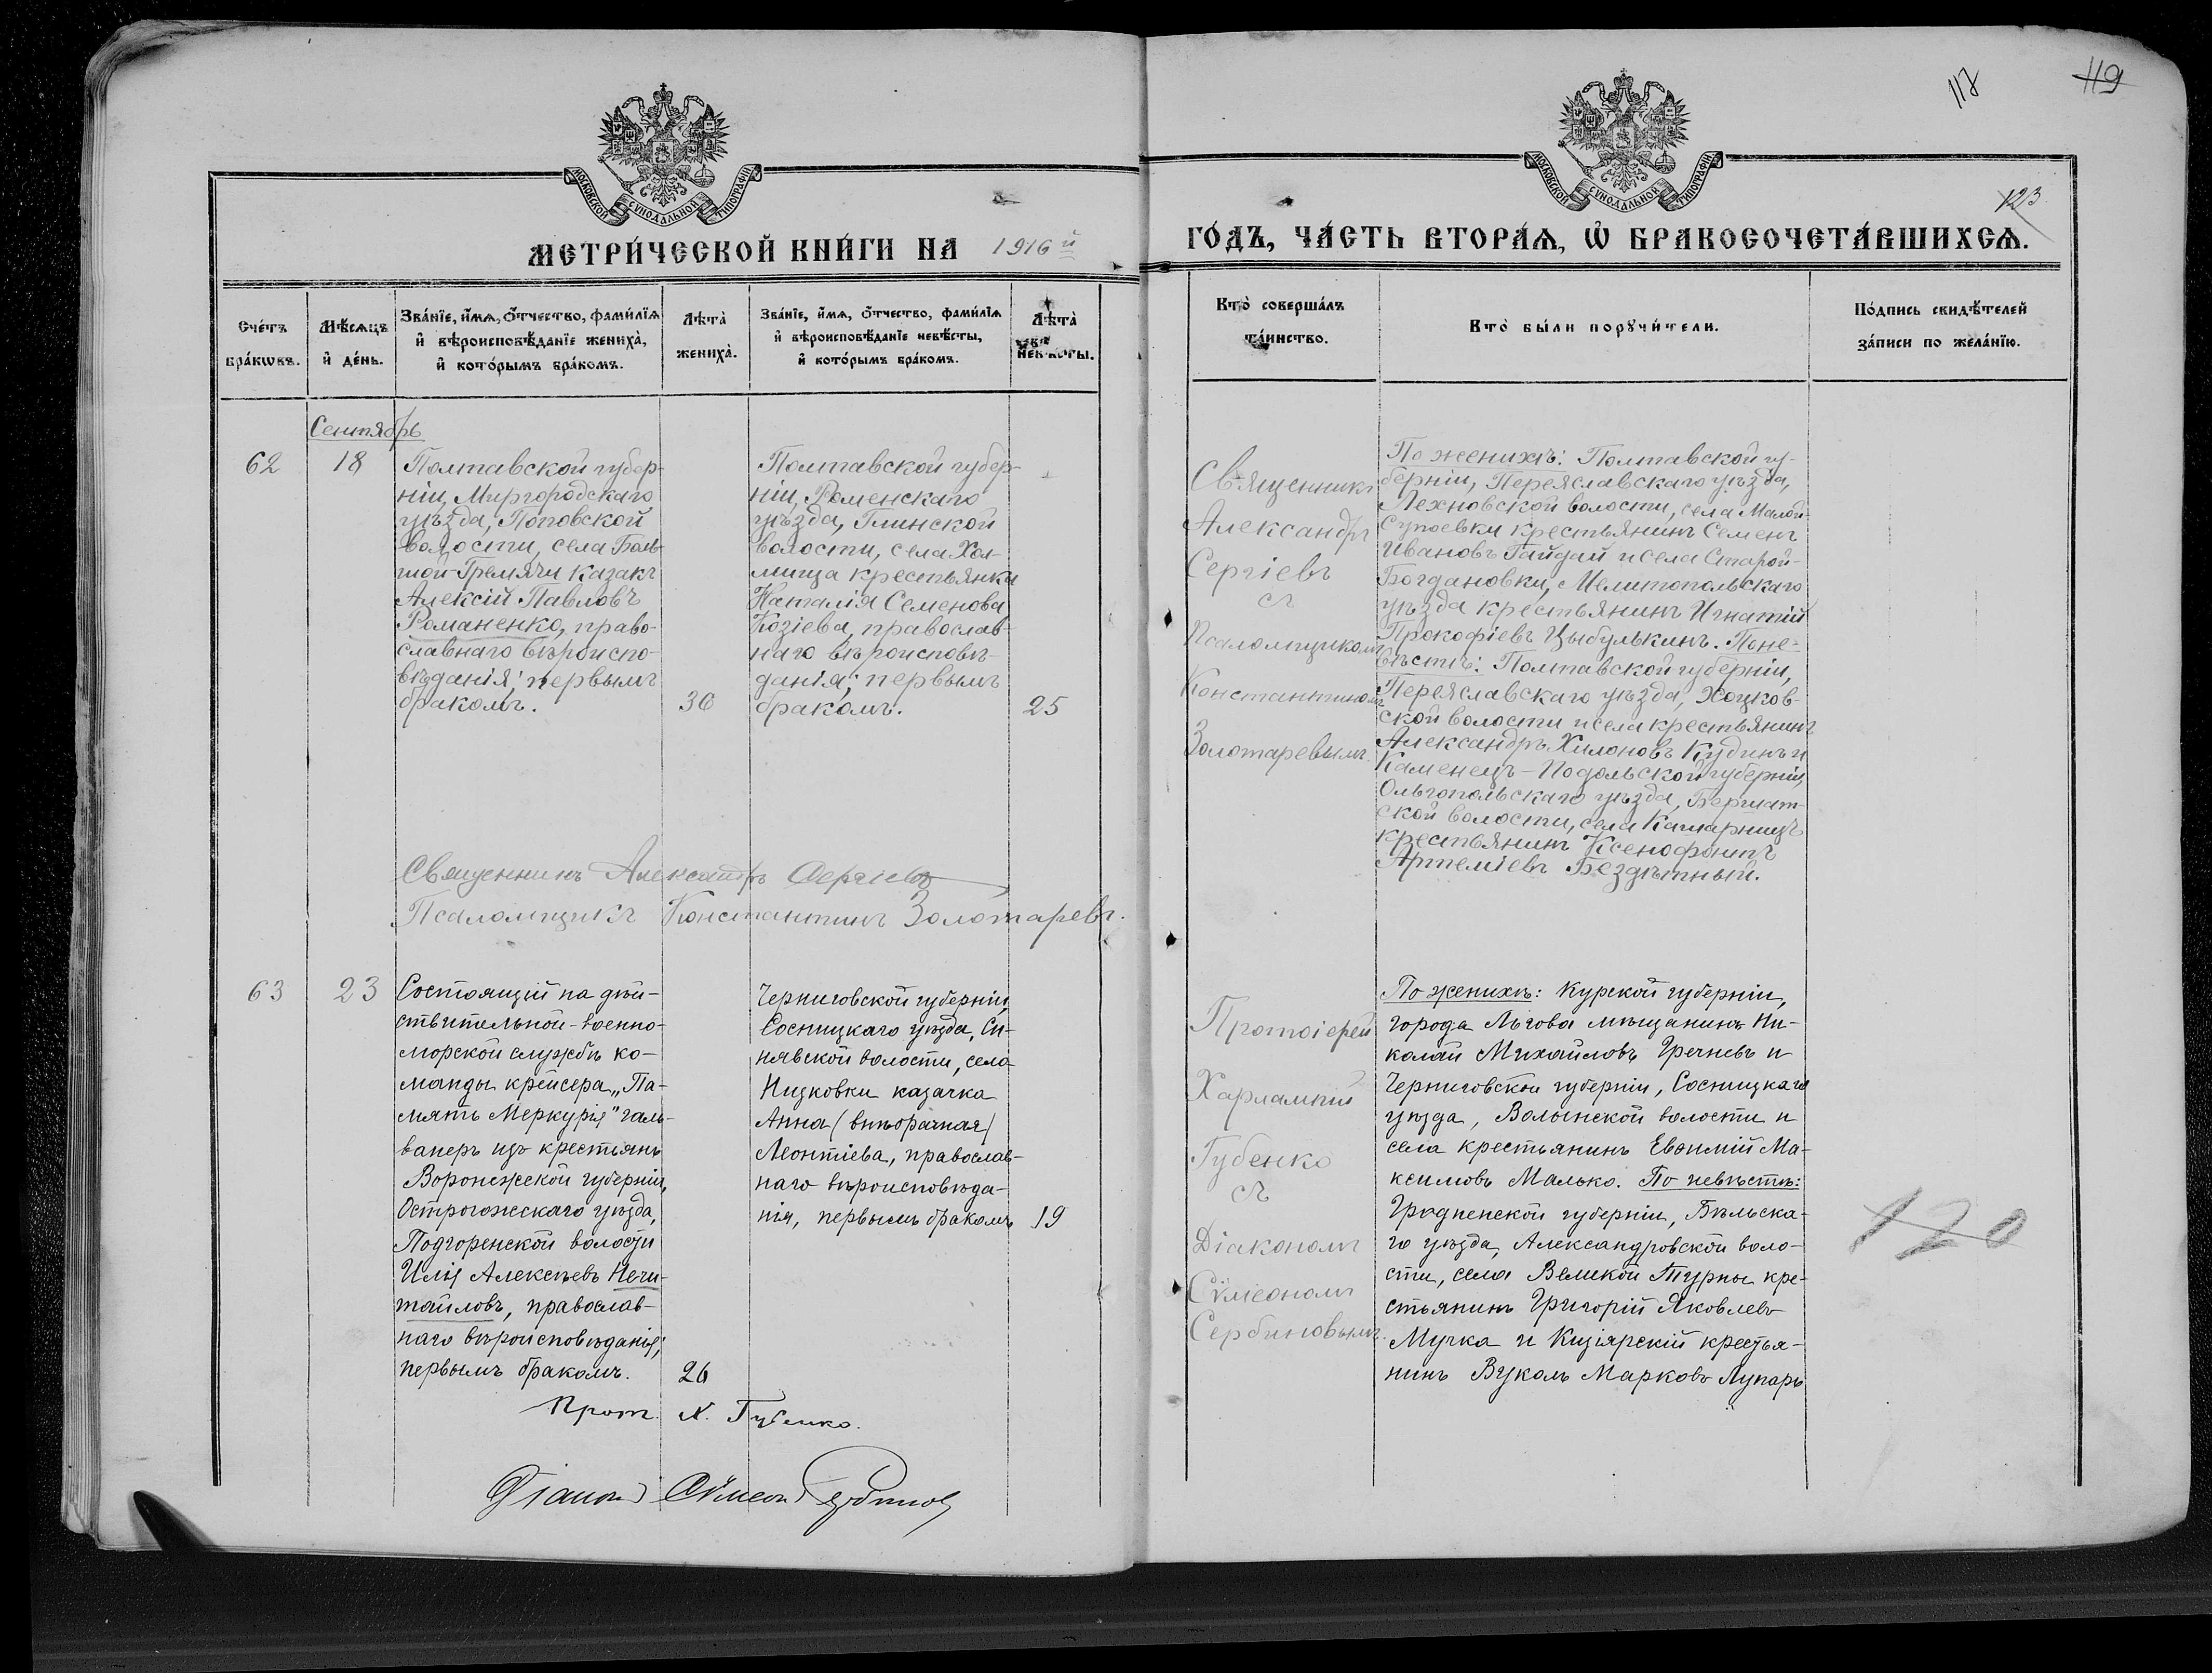 118
119
123
МОСКОВСКОЙ СѴНОДАЛЬНОЙ ТИПОГРАФІИ
МОСКОВСКОЙ СѴНОДАЛЬНОЙ ТИПОГРАФІИ
МЕТРИ́ЧЕСКОЙ КНИ́ГИ НА 1916й
ГО́ДЪ, ЧА́СТЬ ВТОРА́Ѧ, Ѡ БРАКОСОЧЕТА́ВШИХСѦ.
Сче́тъ бра́кѡвъ.
Мѣ́сѧцъ и҆ де́нь.
Зва́нїе, и҆́мѧ, ѻ҆́тчество, фами́лїѧ
и҆ вѣроисповѣ́данїе жениха̀,
и҆ кото́рымъ бра́комъ.
Лѣ́та̀ жениха̀.
Зва́нїе, и҆́мѧ, ѻ҆́тчество, фами́лїѧ
и҆ вѣроисповѣ́данїе невѣ́сты,
и҆ кото́рымъ бра́комъ.
Лѣ́та̀ невѣ́сты.
Кто̀ соверша́лъ
та́инство.
Кто̀ бы́ли порꙋчи́тели.
По́дпись свидѣ́телей
за́писи по жела́нїю.
Сентябрь
62
18
Полтавской губер-
ніи, Миргородскаго
уѣзда, Поповской
волости, села Боль-
шой-Гремячи казакъ
Алексій Павловъ
Романенко, право-
славнаго вѣроиспо-
вѣданія; первымъ
бракомъ.
30
Полтавской губер-
ніи, Роменскаго
уѣзда, Глинской
волости, села Хол-
мища крестьянка
Наталія Семенова
Козіева, православ-
наго вѣроисповѣ-
данія; первымъ
бракомъ.
25
Священникъ
Александръ
Сергіевъ
съ
Псаломщикомъ
Константиномъ
Золотаревымъ.
По женихѣ: Полтавской гу-
берніи, Переяславскаго уѣзда,
Лехновской волости, села Малой-
Супоевки крестьянинъ Семенъ
Ивановъ Гайдай и села Старой-
Богдановки, Мелитопольскаго
уѣзда крестьянинъ Игнатій
Прокофіевъ Цыбулькинъ. По не-
вѣстѣ: Полтавской губерніи,
Переяславскаго уѣзда, Хоцков-
ской волости и села крестьянинъ
Александръ Хилоновъ Кудинъ и
Каменецъ-Подольской губерніи,
Ольгопольскаго уѣзда, Бершат-
ской волости, села
крестьянинъ Ксенофонтъ
Артеміевъ Бездѣтный.
Священникъ Александръ Сергіевъ
Псаломщикъ Константинъ Золотаревъ.
63
23
Состоящій на дѣй-
ствительной-военно-
морской службѣ ко-
манды крейсера „Па-
мять Меркурія" галь-
ванеръ изъ крестьянъ
Воронежской губерніи,
Острогожскаго уѣзда,
Подгоренской волости
Илія Алексѣевъ Нечи-
тайловъ, православ-
наго вѣроисповѣданія;
первымъ бракомъ.
26
Черниговской губерніи,
Сосницкаго уѣзда, Си-
нявской волости, села
Низковки казачка
Анна (внѣбрачная)
Леонтіева, православ-
наго вѣроисповѣда-
нія, первымъ бракомъ
19
Протоіерей
Харлампій
Губенко
съ
Діакономъ
Сѵмеономъ
Сербиновымъ.
По женихѣ: Курской губерніи,
города Льгова мѣщанинъ Ни-
колай Михайловъ Гречневъ и
Черниговской губерніи, Сосницкаго
уѣзда, Волынской волости и
села крестьянинъ Евѳимій Ма-
ксимовъ Малько. По невѣстѣ:
Гродненской губерніи, Бѣльска-
го уѣзда, Александровской воло-
сти, села Великой Турны кре-
стьянинъ Григорій Яковлевъ
Мучка и Кизіярскій крестья-
нинъ Вуколъ Марковъ Лупарь
120
Прот. Х. Губенко.
Діаконъ Сѵмеон Сербинов